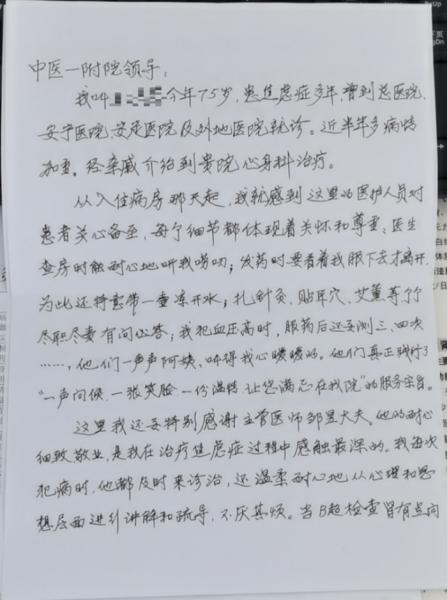 中医一附院领导:
我叫 今年75岁,患焦虑症多年,曾到总医院、
安宁医院、安定医院及外地医院就诊。近半年多病情
加重,经亲戚介绍到贵院心身科治疗。
从入住病房那天起,我就感到这里的医护人员对
患者关心备至,每个细节都体现着关怀和尊重:医生
查房时能耐心地听我唠叨;发药时要看着我服下去才离开,
为此还特意带一壶凉开水;扎针灸、贴耳穴、艾薰等等
尽职尽责有问必答;我犯血压高时,服药后还要测三、四次
……,他们一声声阿姨,叫得我心暖暖的。他们真正践行了
“一声问候,一张笑脸,一份温情让您满意在我院”的服务宗旨。
这里我还要特别感谢主管医师邹昱大夫。他的耐心
细致敬业,是我在治疗焦虑症过程中感触最深的。我每次
犯病时,他都及时来诊治,还温柔耐心地从心理和思
想层面进行讲解和疏导,不厌其烦。当B超检查胃有点问